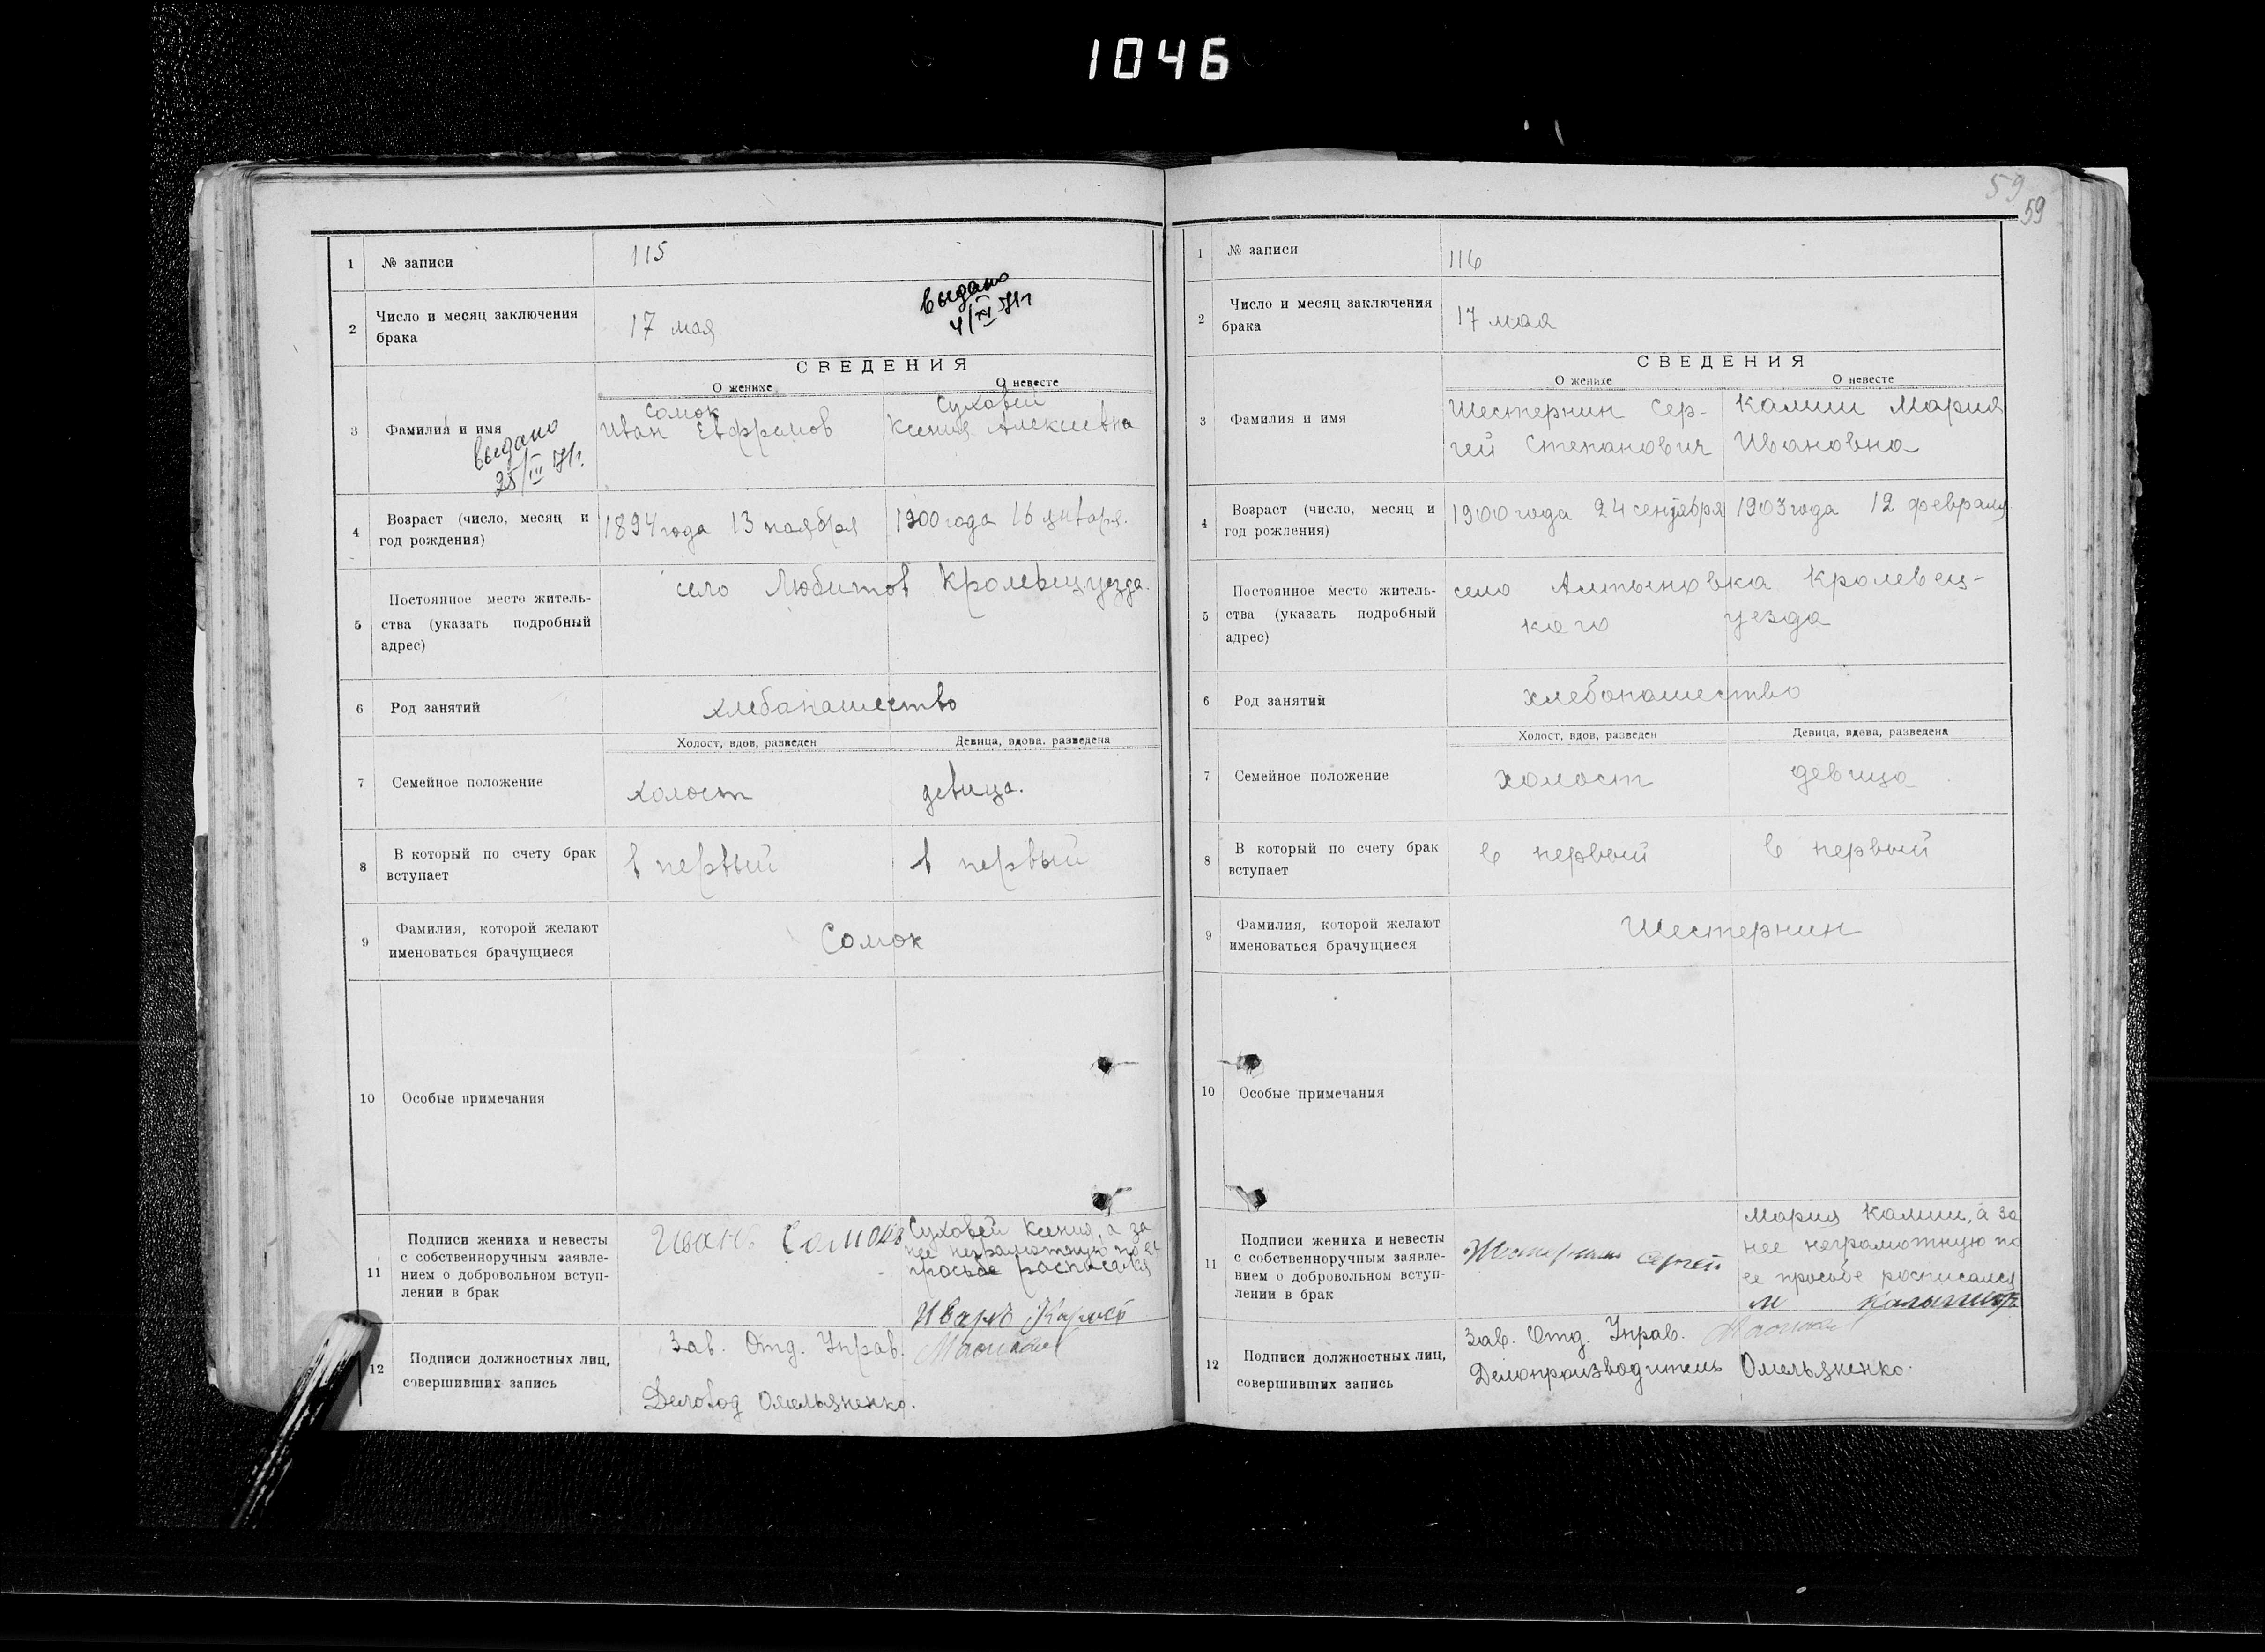 1046
1 № записи 115
2 Число и месяц заключения
брака
17 мая
выдано
4/XI 71г
СВЕДЕНИЯ
О женихе О невесте
3 Фамилия и имя
выдано
25/III 71г.
Сомок
Иван Евфрамов
Суховей
Ксения Алексиевна
4 Возраст (число, месяц и
год рождения)
1894 года 13 ноября
1900 года 16 января.
5 Постоянное место житель-
ства (указать подробный
адрес)
село Любитов Кролевец уезда.
6 Род занятий хлебапашество
Холост, вдов, разведен Девица, вдова, разведена
7 Семейное положение холост девица.
8 В который по счету брак
вступает
в первый в первый
9 Фамилия, которой желают
именоваться брачущиеся
Сомок
10 Особые примечания
11 Подписи жениха и невесты
с собственноручным заявле-
нием о добровольном вступ-
лении в брак
Иван
Суховей Ксения, а за
нее неграмотную по ее
просьбе расписался
12 Подписи должностных лиц,
совершивших запись
Зав. Отд. Управ.
Деловод Омельяненко.
59
59
1 № записи 116
2 Число и месяц заключения
брака
17 мая
СВЕДЕНИЯ
О женихе О невесте
3 Фамилия и имя
Шестернин Сер-
гей Степанович
Калиш Мария
Ивановна
4 Возраст (число, месяц и
год рождения)
1900 года 24 сентября
1903 года 12 февраля
5 Постоянное место житель-
ства (указать подробный
адрес)
село Алтыновка Кролевец-
кого уезда
6 Род занятий хлебопашество
Холост, вдов, разведен Девица, вдова, разведена
7 Семейное положение холост девица
8 В который по счету брак
вступает
в первый в первый
9 Фамилия, которой желают
именоваться брачущиеся
Шестернин
10 Особые примечания
11 Подписи жениха и невесты
с собственноручным заявле-
нием о добровольном вступ-
лении в брак
Шестернин Сергей
Мария Калиш, а за
нее неграмотную по
ее просьбе росписался
12 Подписи должностных лиц,
совершивших запись
Зав. Отд. Управ.
Делопроизводитель Омельяненко.